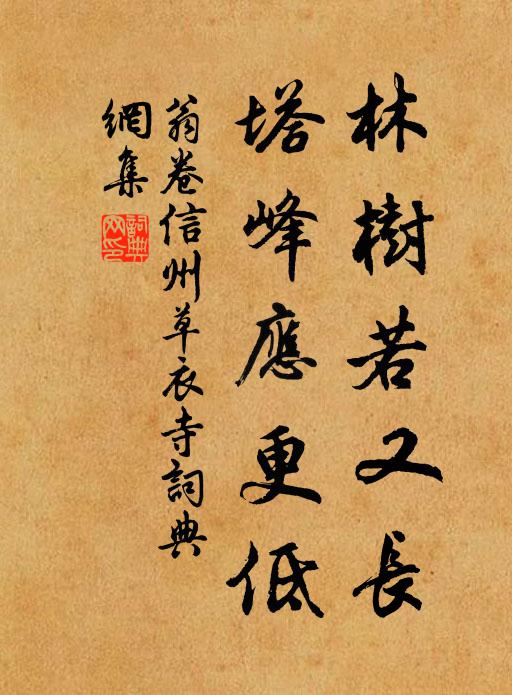 林樹若又長
塔峰應更低
翁卷信州草衣寺詞典
網集
詞典
网印